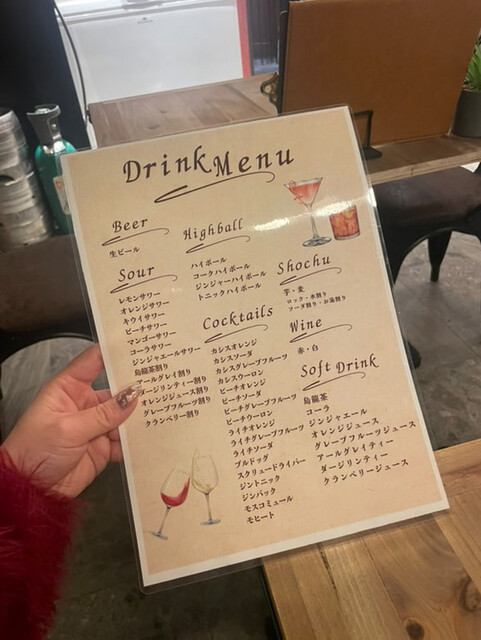 Drink Menu
Beer
生ビール
Sour
レモンサワー
オレンジサワー
キウイサワー
ピーチサワー
マンゴーサワー
コーラサワー
ジンジャエールサワー
烏龍茶割り
アールグレイ割り
ダージリンティー割り
オレンジジュース割り
グレープフルーツ割り
クランベリー割り
Highball
ハイボール
コークハイボール
ジンジャーハイボール
トニックハイボール
Cocktails
カシスオレンジ
カシスソーダ
カシスグレープフルーツ
カシスウーロン
ピーチオレンジ
ピーチソーダ
ピーチグレープフルーツ
ピーチウーロン
ライチオレンジ
ライチグレープフルーツ
ライチソーダ
ブルドッグ
スクリュードライバー
ジントニック
ジンバック
モスコミュール
モヒート
Shochu
芋・麦
ロック・水割り
ソーダ割り・お湯割り
Wine
赤・白
Soft Drink
烏龍茶
コーラ
ジンジャエール
オレンジジュース
グレープフルーツジュース
アールグレイティー
ダージリンティー
クランベリージュース